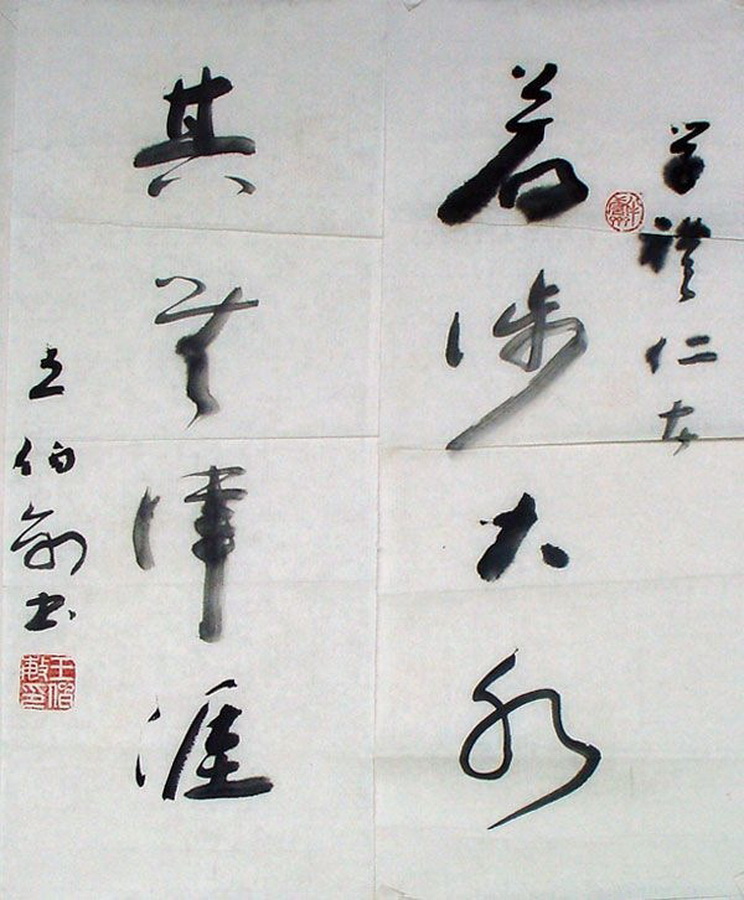 学禮仁友
若涉大水
其無津涯
王伯敏书
王伯敏印